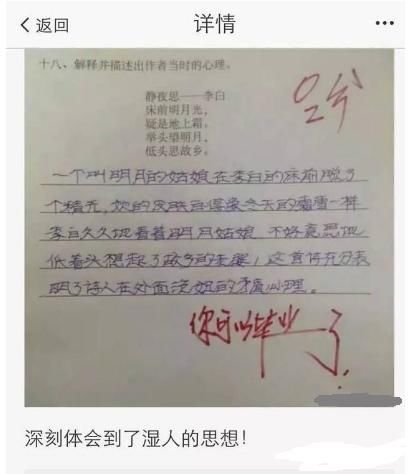 返回
详情
十八、解释并描述出作者当时的心理。
静夜思——李白
床前明月光，
疑是地上霜。
举头望明月，
低头思故乡。
0分
一个叫明月的姑娘在李白的床前脱了
个精光，她的皮肤白得象冬天的霜雪一样
李白久久地看着明月姑娘 不好意思地
低着头想起了故乡的老婆，这首诗充分表
明了诗人在外面泡妞的矛盾心理。
你可以毕业了
深刻体会到了湿人的思想！